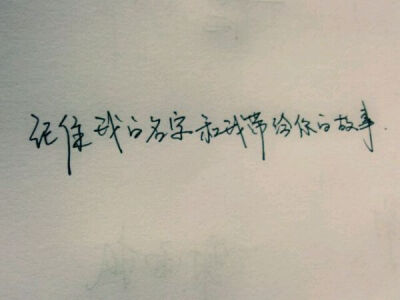 记住我的名字和我带给你的故事.